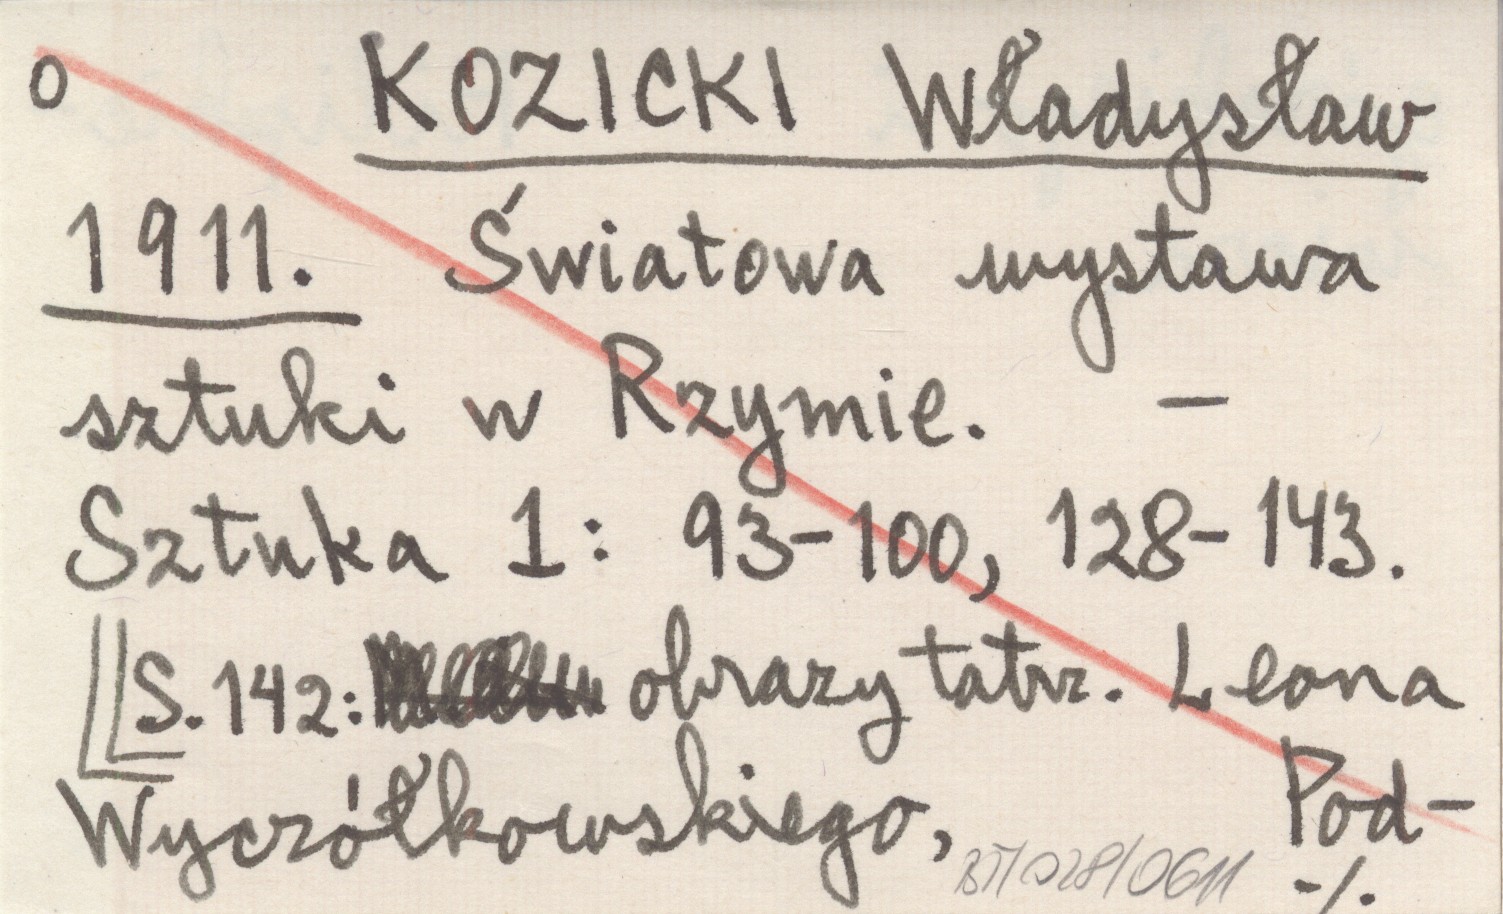 o KOZICKI Władysław
1911. Światowa wystawa
sztuki w Rzymie. —
Sztuka 1: 93-100, 128-143.
S. 142: obrazy tatrz. Leona
Wyczółkowskiego, Pod-
BT/028/0611 -/.